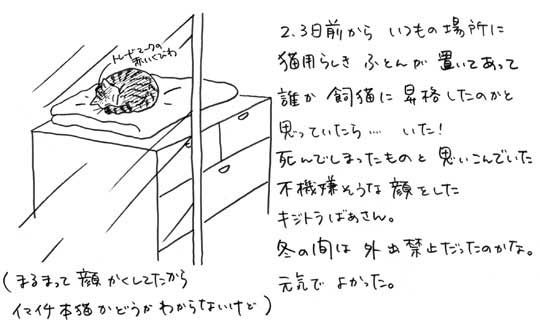 トレードマークの
赤いくびわ
2、3日前から いつもの場所に
猫用らしき ふとんが 置いてあって
誰か 飼猫に 昇格したのかと
思っていたら…. いた!
死んでしまったものと 思いこんでいた
不機嫌そうな 顔をした
キジトラばあさん。
冬の間は 外出禁止だったのかな。
元気で よかった。
(まるまって 顔 かくしてたから
イマイチ本猫かどうかわからないけど)